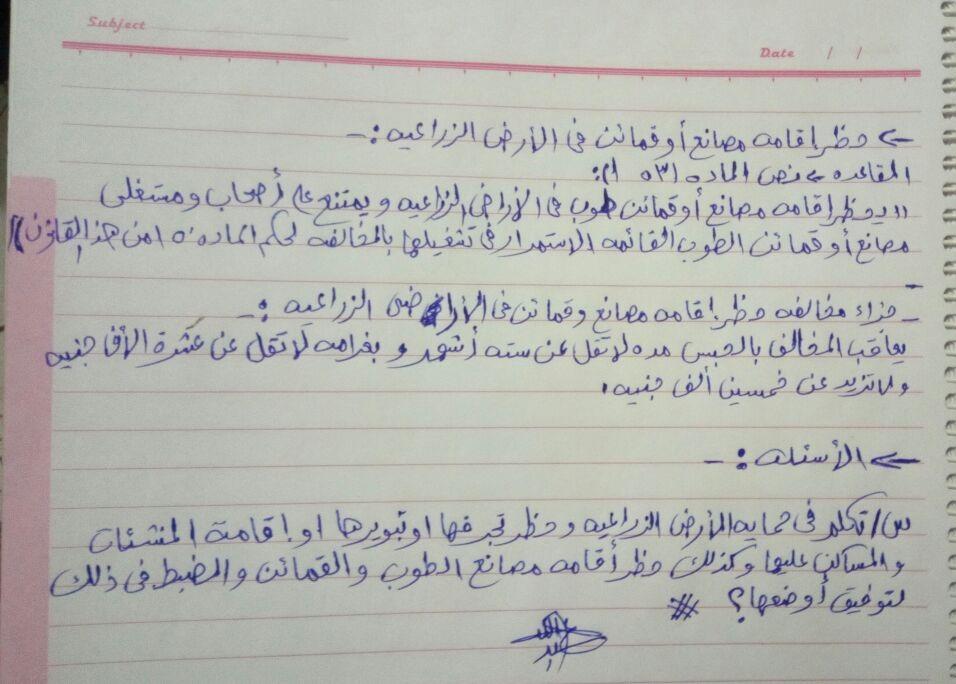 Subject
Date / /
← حظر إقامه مصانع أو قمائن فى الأرض الزراعيه :-
القاعده ← نص الماده (١٥٣):
"يحظر إقامه مصانع أو قمائن طوب فى الاراضى الزراعيه ويمتنع على أصحاب ومستغلى
مصانع أو قمائن الطوب القائمه الاستمرار فى تشغيلها بالمخالفه لحكم الماده ١٥٠ من هذا القانون"
- جزاء مخالفه حظر إقامه مصانع وقمائن فى الأراضى الزراعيه :-
يعاقب المخالف بالحبس مده لا تقل عن سته أشهر وبغرامه لا تقل عن عشرة الأف جنيه
ولا تزيد عن خمسين ألف جنيه.
← الأسئله :-
س/ تكلم فى حمايه الأرض الزراعيه وحظر تجريفها او تبويرها او إقامة المنشئات
والمساكن عليها وكذلك حظر أقامه مصانع الطوب والقمائن والضبط فى ذلك
لتوفيق أوضعها؟ #